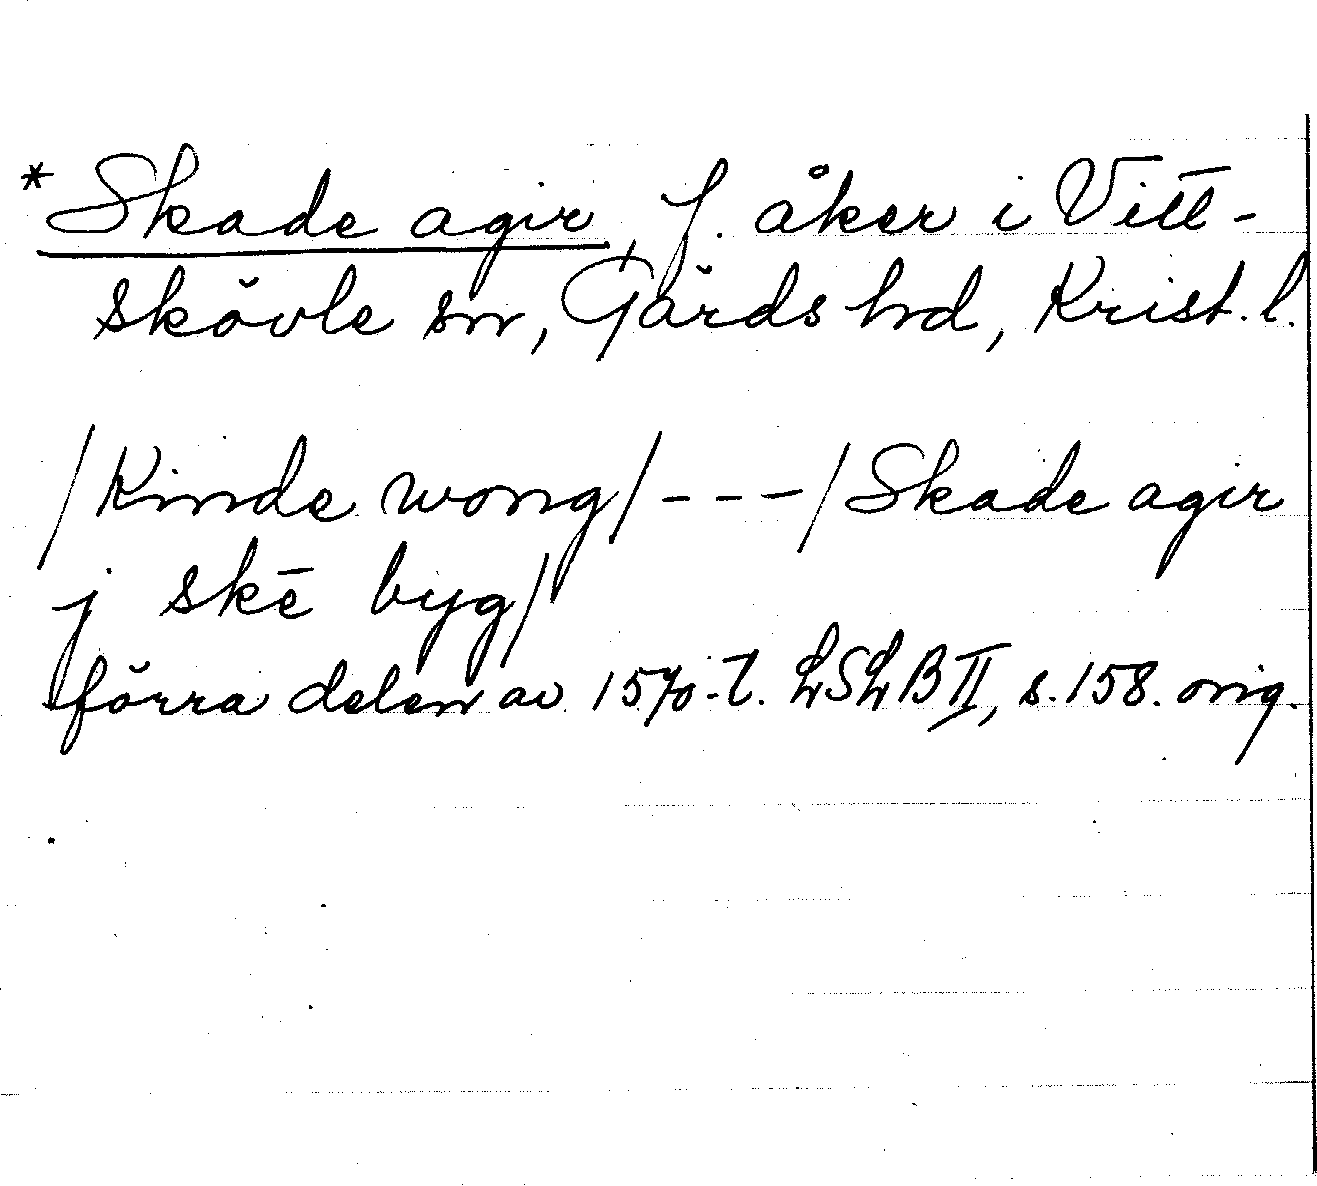 * Skade agir, f. åker i Vitt-
skövle sn, Gärds hd, Krist. l.
/Kinde wong/ - - - /Skade agir
j skē byg/
förra delen av 1570-t. LSLB II, s. 158. orig.